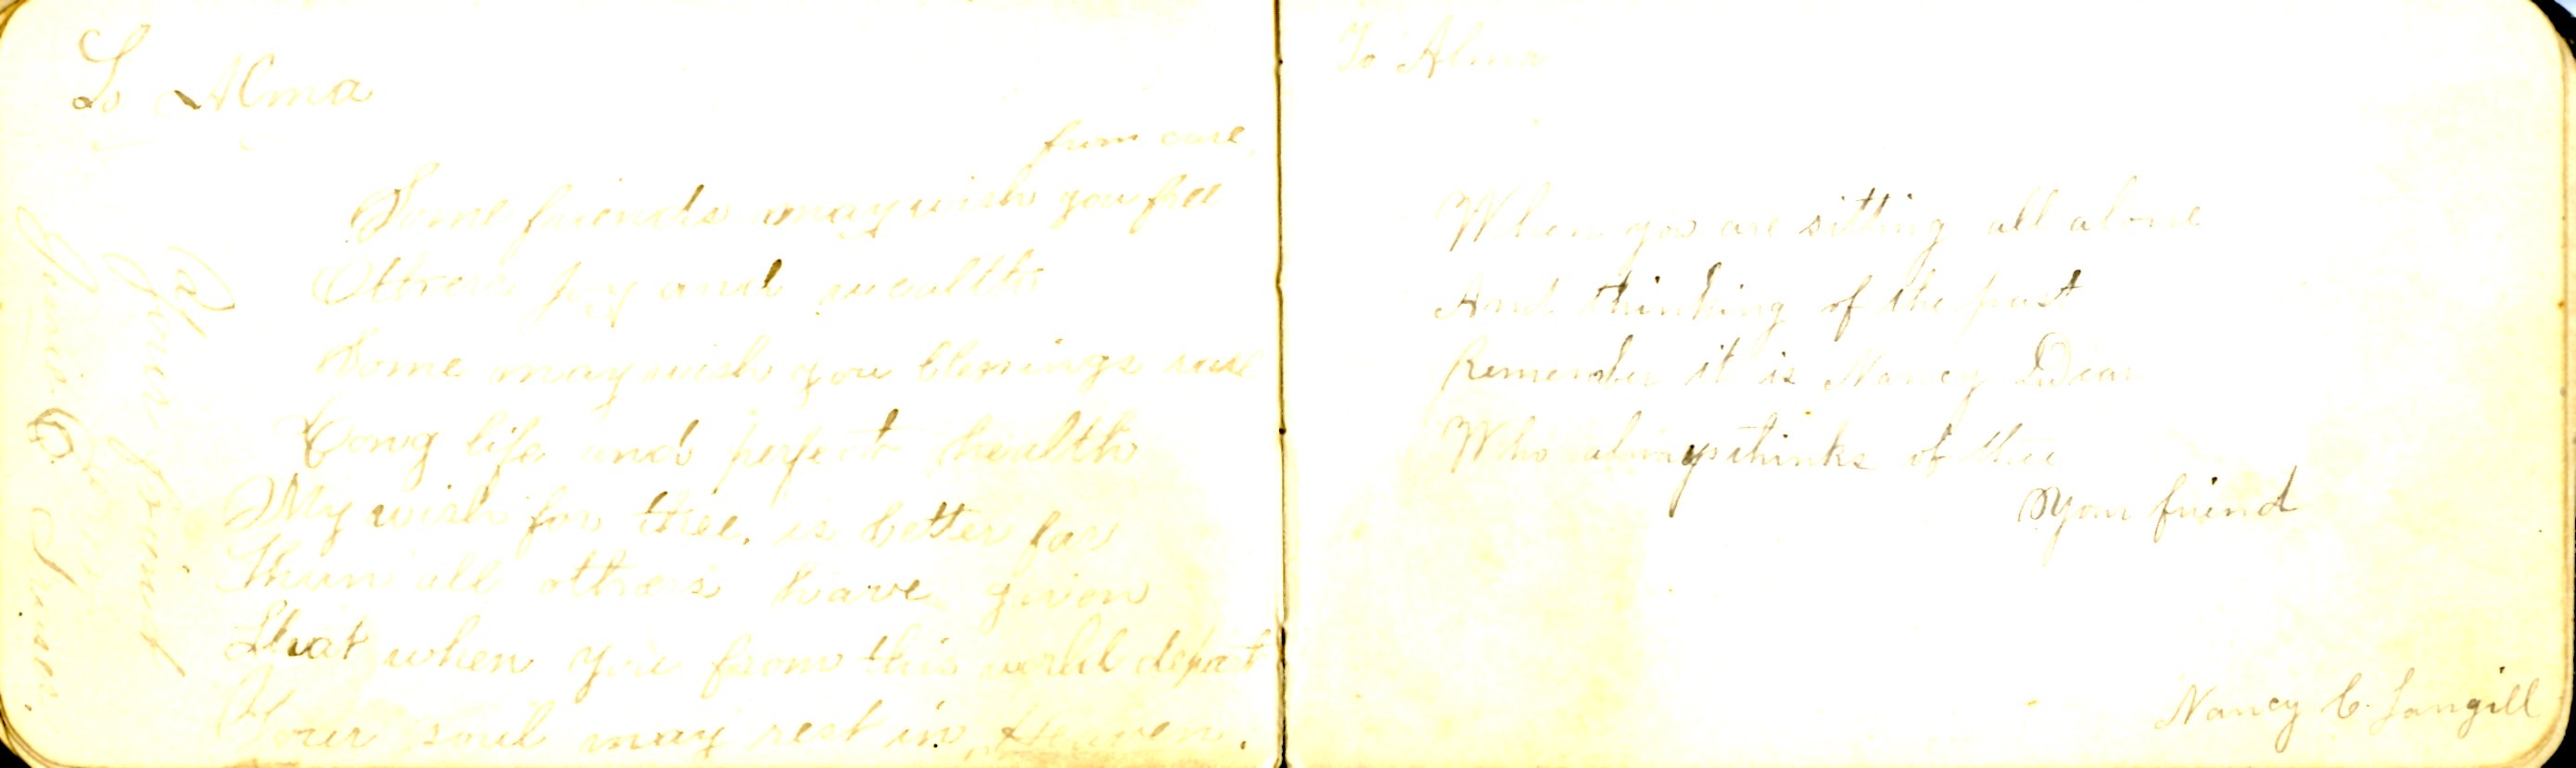 To Alma
from care,
Some friends may wish you free
Others joy and wealth
Some may wish you blessings rare
Long life and perfect health
My wish for thee, is better far
Than all others have given
That when you from this world depart
Your soul may rest in Heaven.
Your friend
To Alma
When you are sitting all alone
And thinking of the past
Remember it is Nancy Dear
Who always thinks of thee
Your friend
Nancy C. Langill